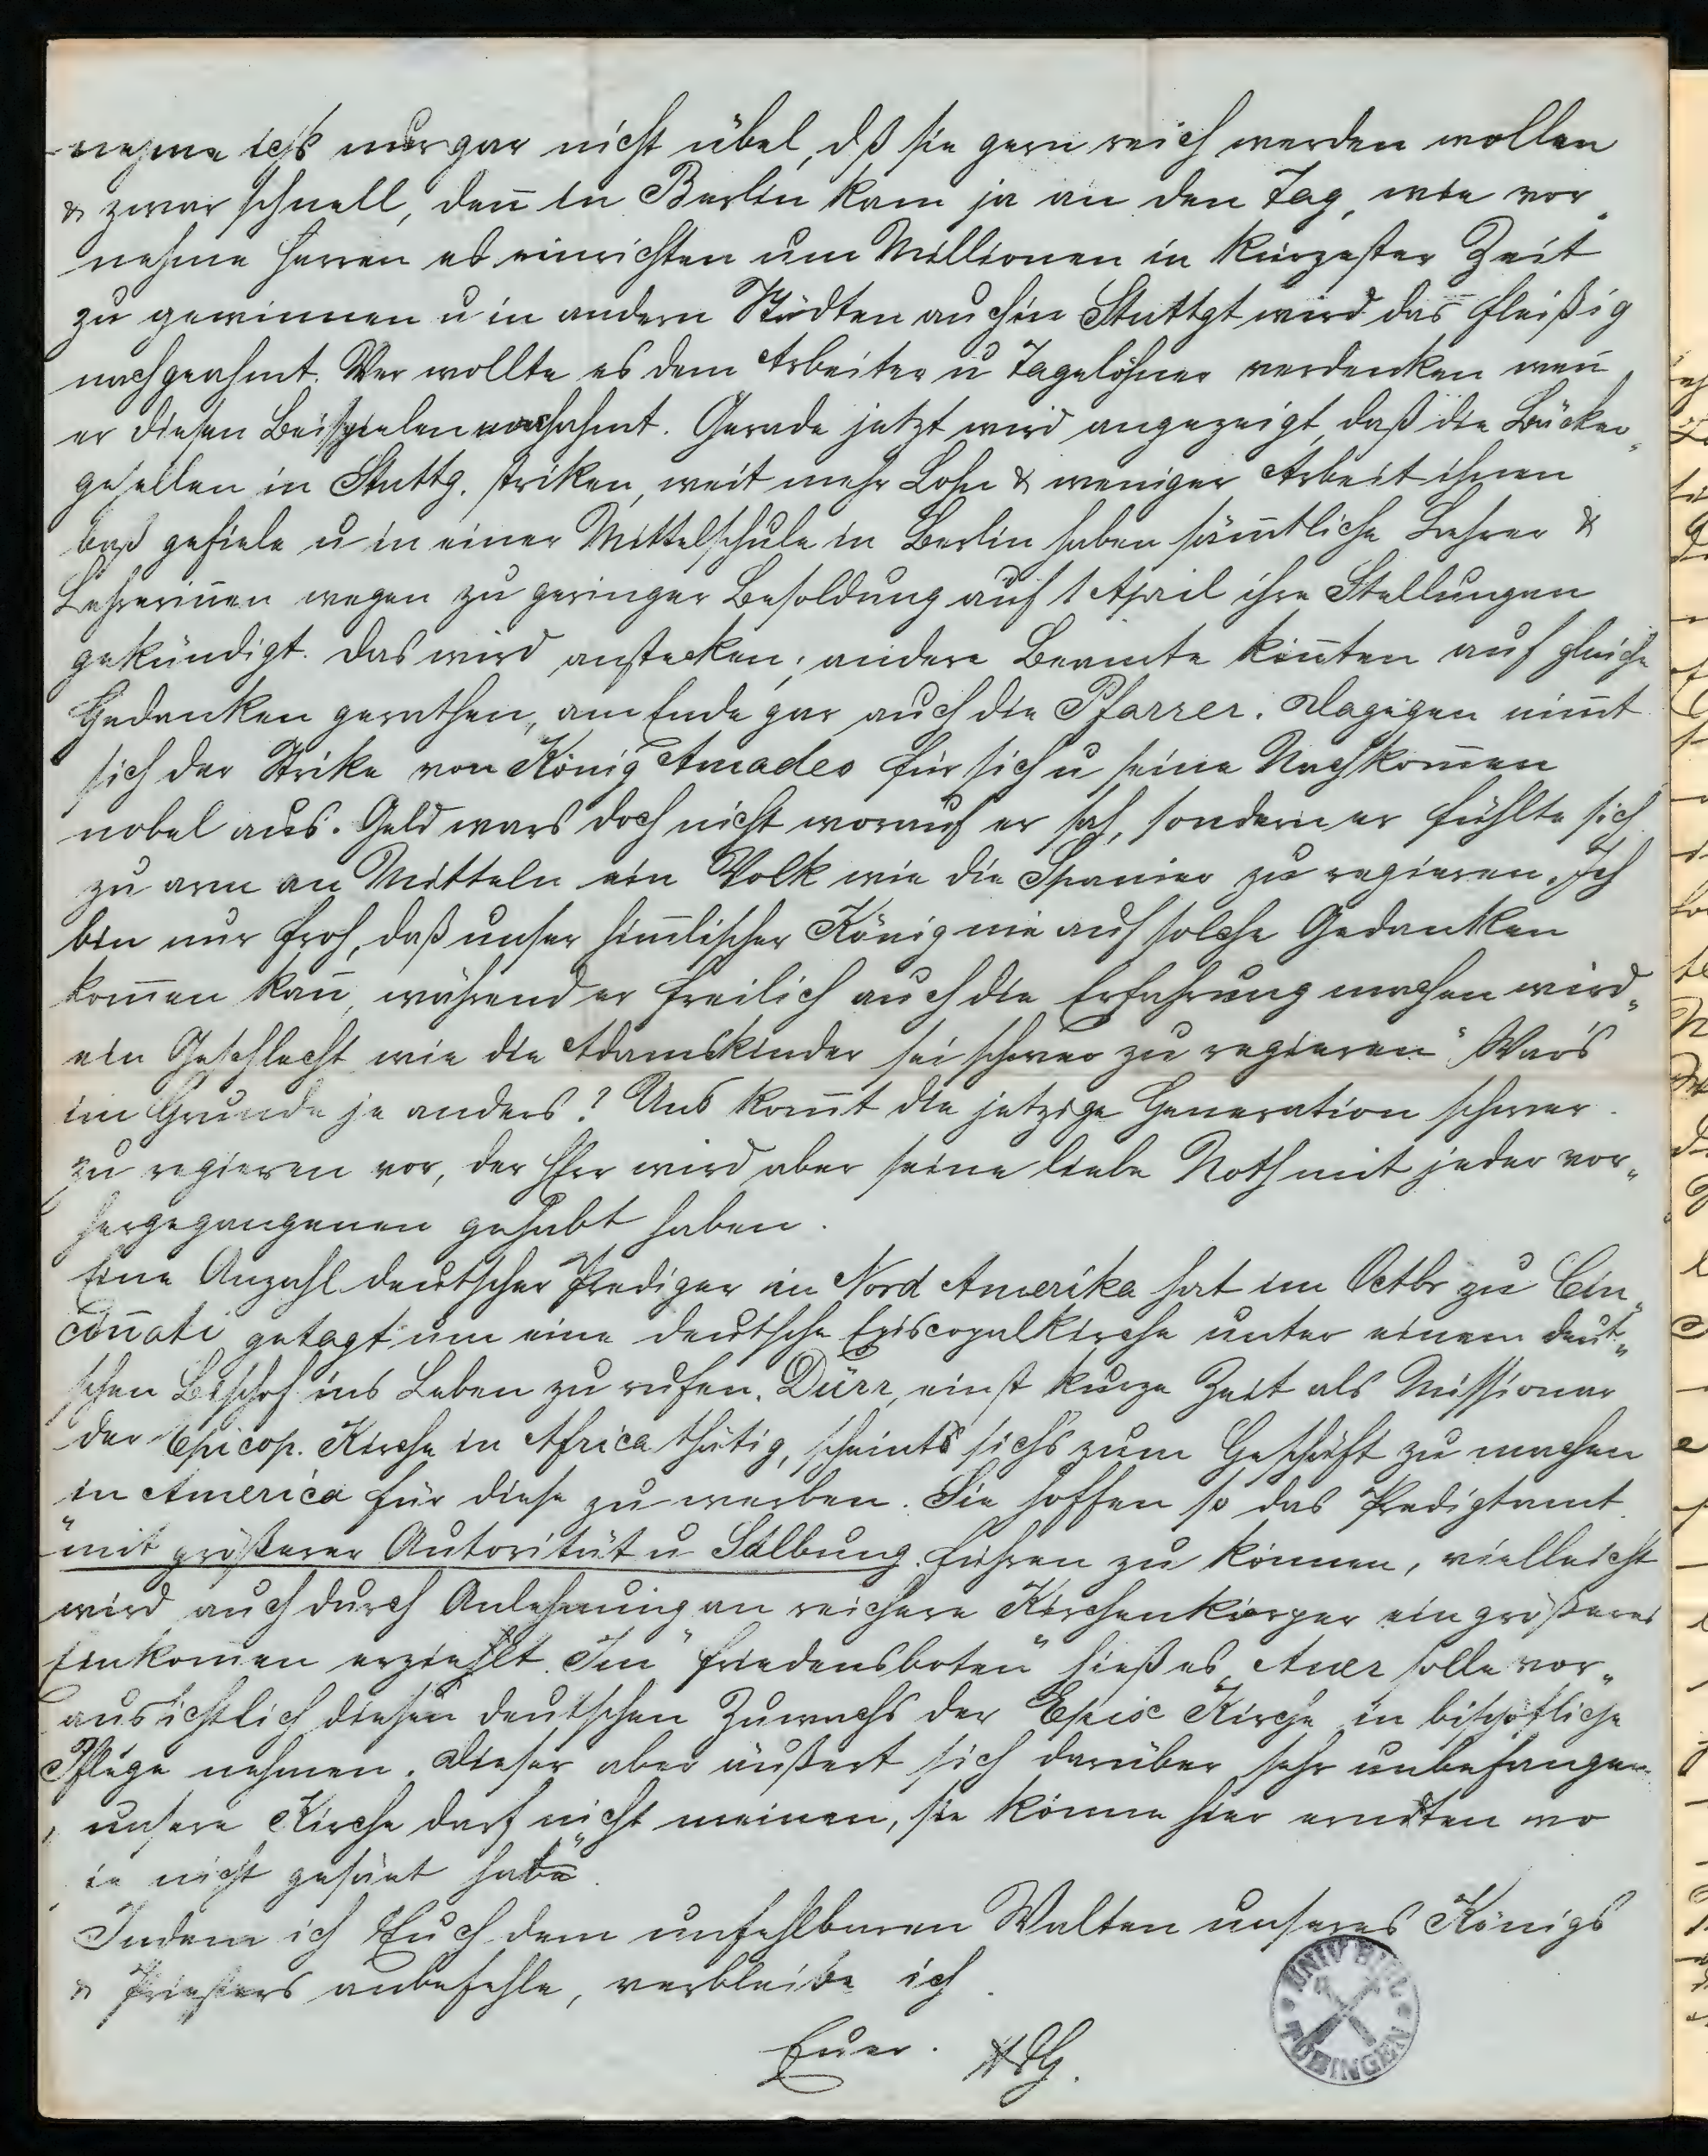 nehme ichs nur gar nicht übel, dß sie gern reich werden wollen
& zwar schnell, deñ in Berlin kam ja an den Tag, wie vor„
nehme Herren es einrichten um Millionen in kürzester Zeit
zu gewinnen u in andern Städten auch in Stuttgt wird das fleißig
nachgeahmt. Wer wollte es dem Arbeiter u Tagelöhner verdenken weñ
er diesen Beispielen nachahmt. Gerade jetzt wird angezeigt, daß die Bäcker„
gesellen in Stuttg. striken, weit mehr Lohn & weniger Arbeit ihnen
baß gefiele u in einer Mittelschule in Berlin haben säm̄tliche Lehrer &
Lehreriñen wegen zu geringer Besoldung auf 1 April ihre Stellungen
gekündigt. Das wird anstecken; andere Beamte köñten auf gleiche
Gedanken gerathen, am Ende gar auch die Pfarrer. Dagegen nim̄t
sich der Strike von König Amadeo für sich u seine Nachkom̄en
nobel aus. Geld wars doch nicht worauf er sah, sondern er fühlte sich
zu arm an Mitteln ein Volk wie die Spanier zu regieren. Ich
bin nur froh, daß unser him̄lischer König nie auf solche Gedanken
kom̄en kañ, während er freilich auch die Erfahrung machen wird„
ein Geschlecht wie die Adamskinder sei schwer zu regieren" Wars
im Grunde je anders? Uns kom̄t die jetzige Generation schwer
zu regieren vor, der HErr wird aber seine liebe Noth mit jeder vor„
hergegangenen gehabt haben.
Eine Anzahl deutscher Prediger in Nord Amerika hat im Octbr zu Cin„
ciñati getagt um eine deutsche Episcopalkirche unter einem deut„
schen Bischof ins Leben zu rufen. Dürr, einst kurze Zeit als Missionar
der Epicop. Kirche in Africa thätig, scheints sichs zum Geschäft zu machen
in America für diese zu werben. Sie hoffen so das Predigtamt
"mit größerer Autorität u Salbung führen zu können, vielleicht
wird auch durch Anlehnung an reichere Kirchenkörper ein größeres
Einkom̄en erziehlt. Im "Friedensboten" hieß es, Auer solle vor„
aussichtlich diesen deutschen Zuwachs der Episc Kirche in bischöfliche
Pflege nehmen. Dieser aber äußert sich darüber sehr unbefangen
„ unsere Kirche darf nicht meinen, sie könne hier erndten wo
sie nicht gesäet habe".
Indem ich Euch dem unfehlbaren Walten unseres Königs
& Priesters anbefehle, verbleibe ich
Euer HG.
UNIV BIBL TÜBINGEN